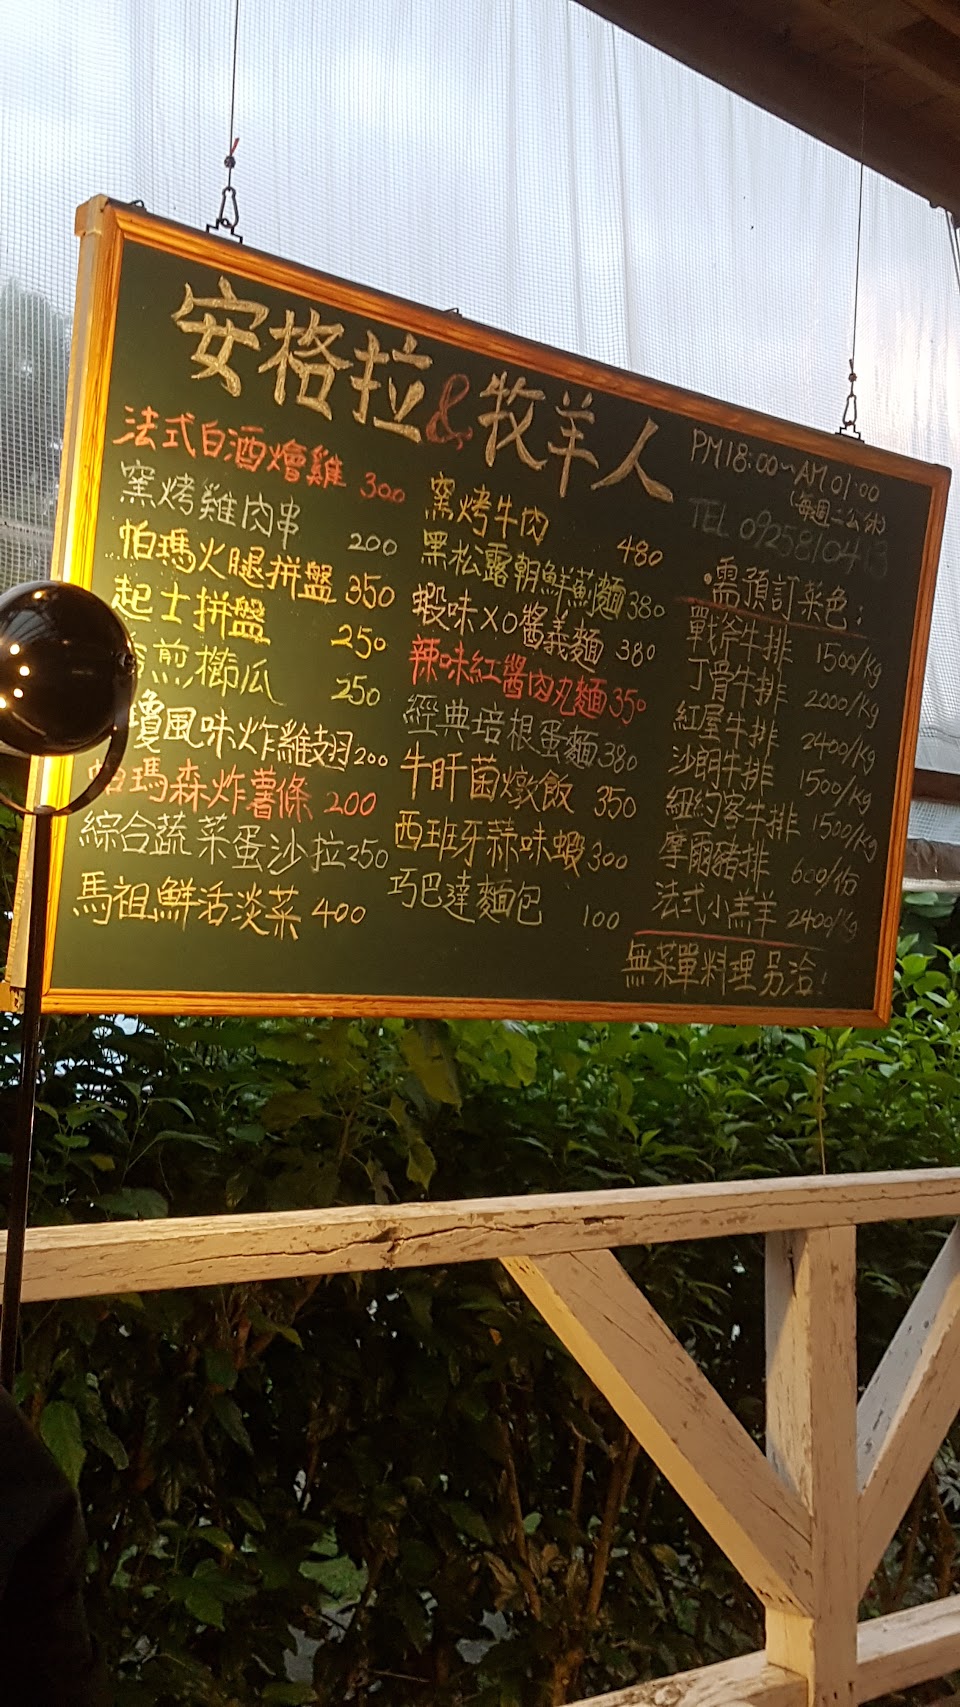 安格拉&牧羊人
PM18:00~AM01:00
(每週二公休)
TEL 0925810413
法式白酒燴雞 300
窯烤雞肉串 200
帕瑪火腿拼盤 350
起士拼盤 250
煎櫛瓜 250
瓊風味炸雞翅 200
帕瑪森炸薯條 200
綜合蔬菜蛋沙拉 250
馬祖鮮活淡菜 400
窯烤牛肉 480
黑松露朝鮮薊麵 380
蝦味XO醬義麵 380
辣味紅醬肉丸麵 350
經典培根蛋麵 380
牛肝菌燉飯 350
西班牙蒜味蝦 300
巧巴達麵包 100
需預訂菜色:
戰斧牛排 1500/Kg
丁骨牛排 2000/Kg
紅屋牛排 2400/Kg
沙朗牛排 1500/Kg
紐約客牛排 1500/Kg
摩爾豬排 600/份
法式小羔羊 2400/Kg
無菜單料理另洽!